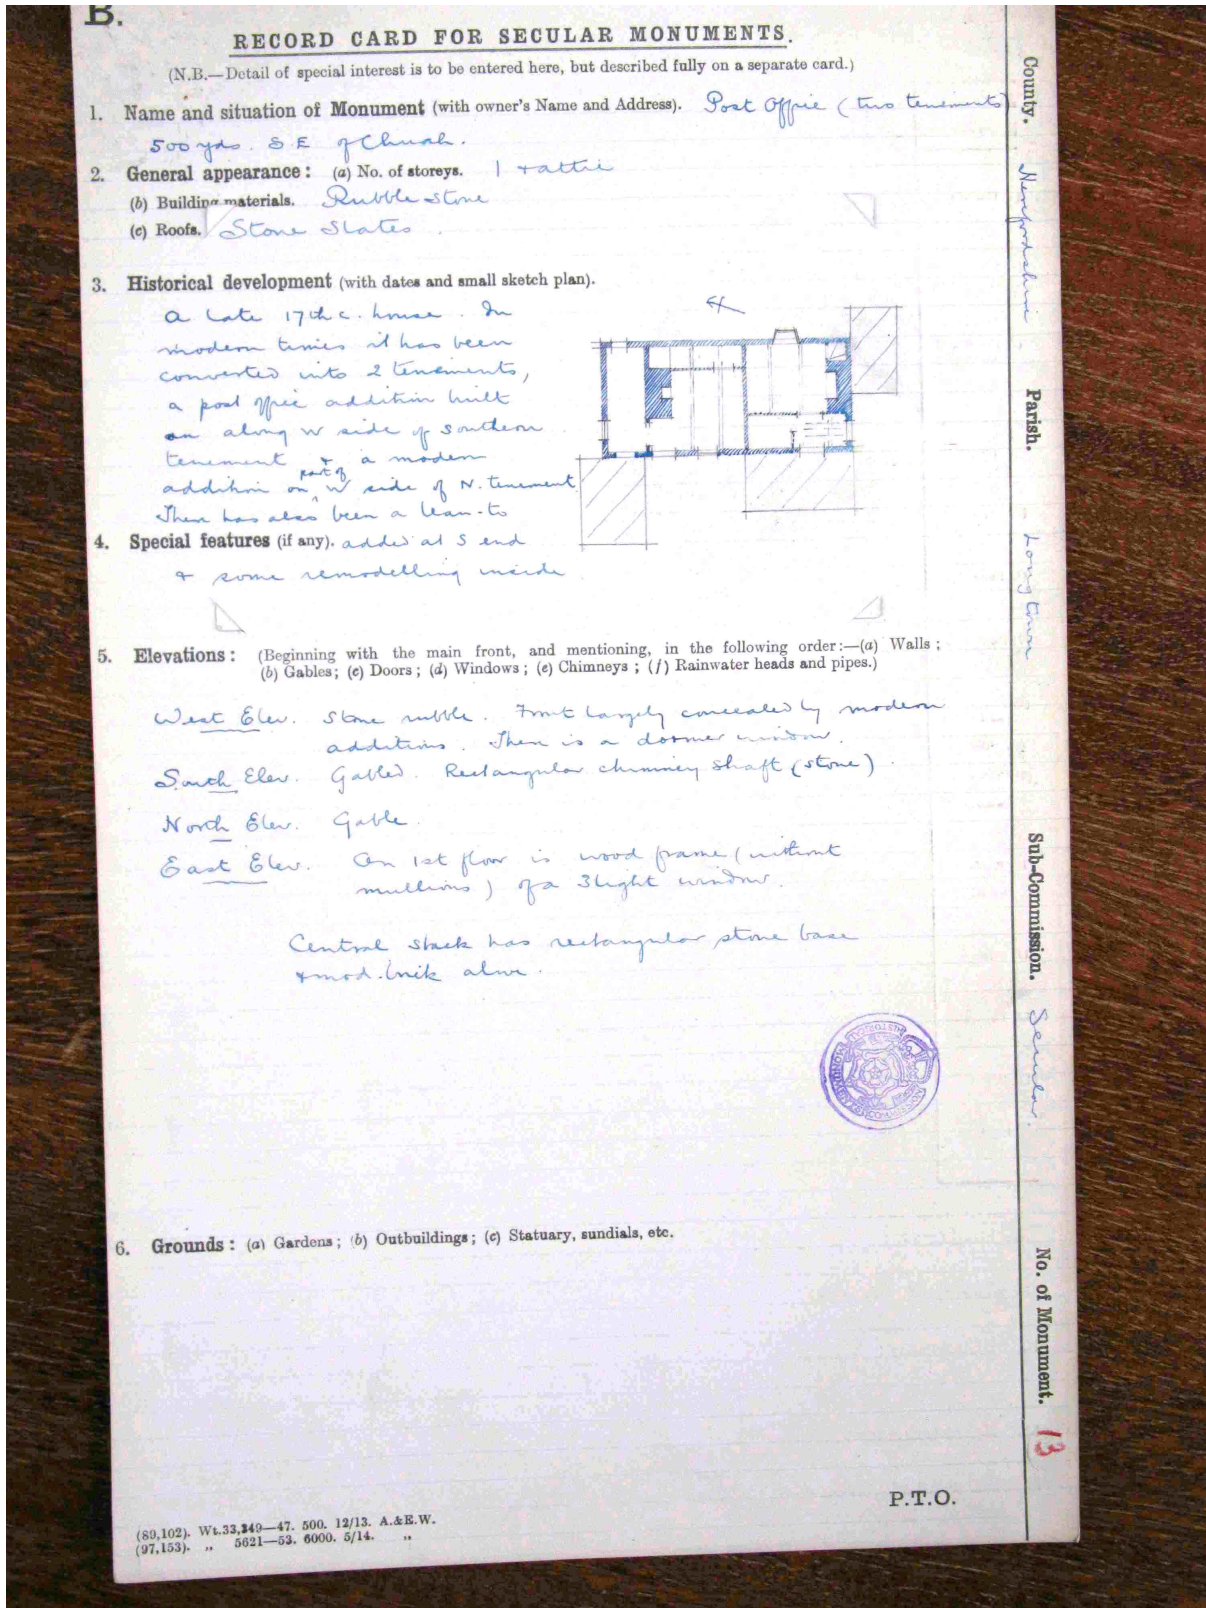 B.
RECORD CARD FOR SECULAR MONUMENTS.
(N.B.—Detail of special interest is to be entered here, but described fully on a separate card.)
1. Name and situation of Monument (with owner's Name and Address). Post Office (two tenements)
500 yds. S E of Church.
2. General appearance: (a) No. of storeys. 1 + attic
(b) Building materials. Rubble Stone
(c) Roofs. Stone Slates.
3. Historical development (with dates and small sketch plan).
A late 17th c. house. In
modern times it has been
converted into 2 tenements,
a post office addition built
on along W side of southern
tenement & a modern
addition on part of W side of N. tenement
There has also been a lean-to
4. Special features (if any). added at S end
& some remodelling inside
5. Elevations: (Beginning with the main front, and mentioning, in the following order:—(a) Walls;
(b) Gables; (c) Doors; (d) Windows; (e) Chimneys; (f) Rainwater heads and pipes.)
West Elev. Stone rubble. Front largely concealed by modern
additions. There is a dormer window.
South Elev. Gabled. Rectangular chimney shaft (stone).
North Elev. Gable.
East Elev. On 1st floor is wood frame (without
mullions) of a 3 light window.
Central stack has rectangular stone base
& mod. brick above.
6. Grounds: (a) Gardens; (b) Outbuildings; (c) Statuary, sundials, etc.
P.T.O.
(89,102). Wt.33,349—47. 500. 12/13. A.&E.W.
(97,153). „ 5621—53. 6000. 5/14. „
County. Herefordshire
Parish. Longtown
Sub-Commission. Secular.
No. of Monument. 13